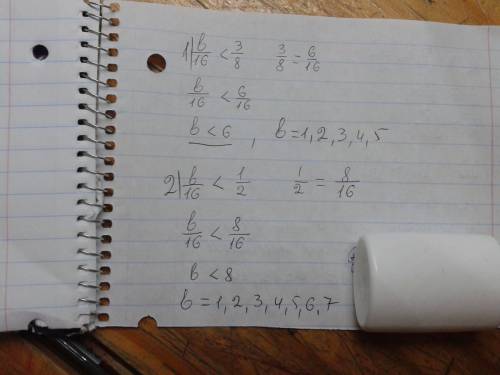 1| b/16 < 3/8   3/8 = 6/16
b/16 < 6/16
b < 6 , b = 1, 2, 3, 4, 5
2| b/16 < 1/2   1/2 = 8/16
b/16 < 8/16
b < 8
b = 1, 2, 3, 4, 5, 6, 7